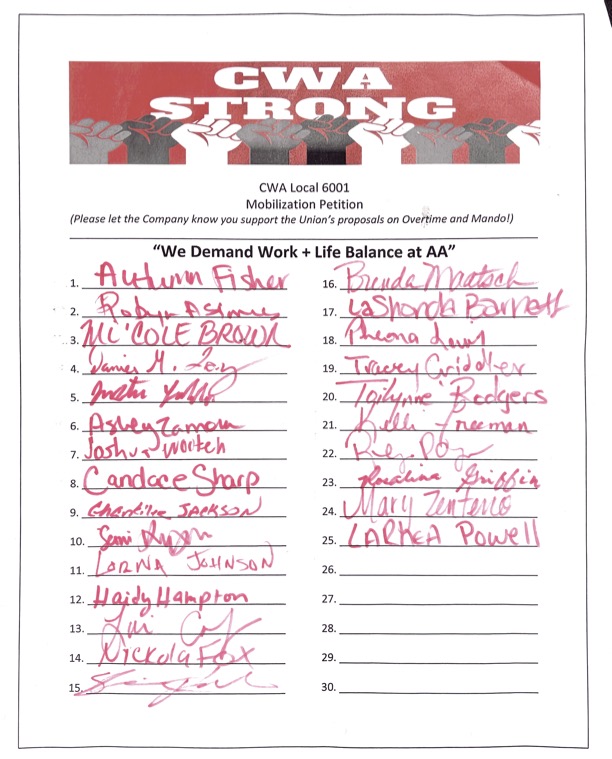 CWA
STRONG
CWA Local 6001
Mobilization Petition
(Please let the Company know you support the Union's proposals on Overtime and Mando!)
"We Demand Work + Life Balance at AA"
1. Autumn Fisher
2. Robyn
3. Mc'Cole Brown
4. M.
5.
6. Ashley Zamora
7. Joshua
8. Candace Sharp
9. JACKSON
10.
11. LORNA JOHNSON
12. Haidy Hampton
13.
14. Nickola Fox
15.
16. Brenda Maatsch
17. LaShonda Barnett
18. Pheona
19. Tracey Griddler
20. Bedgers
21. Kelli Freeman
22.
23. Griffin
24. Mary Zenteno
25. LARHEA Powell
26.
27.
28.
29.
30.